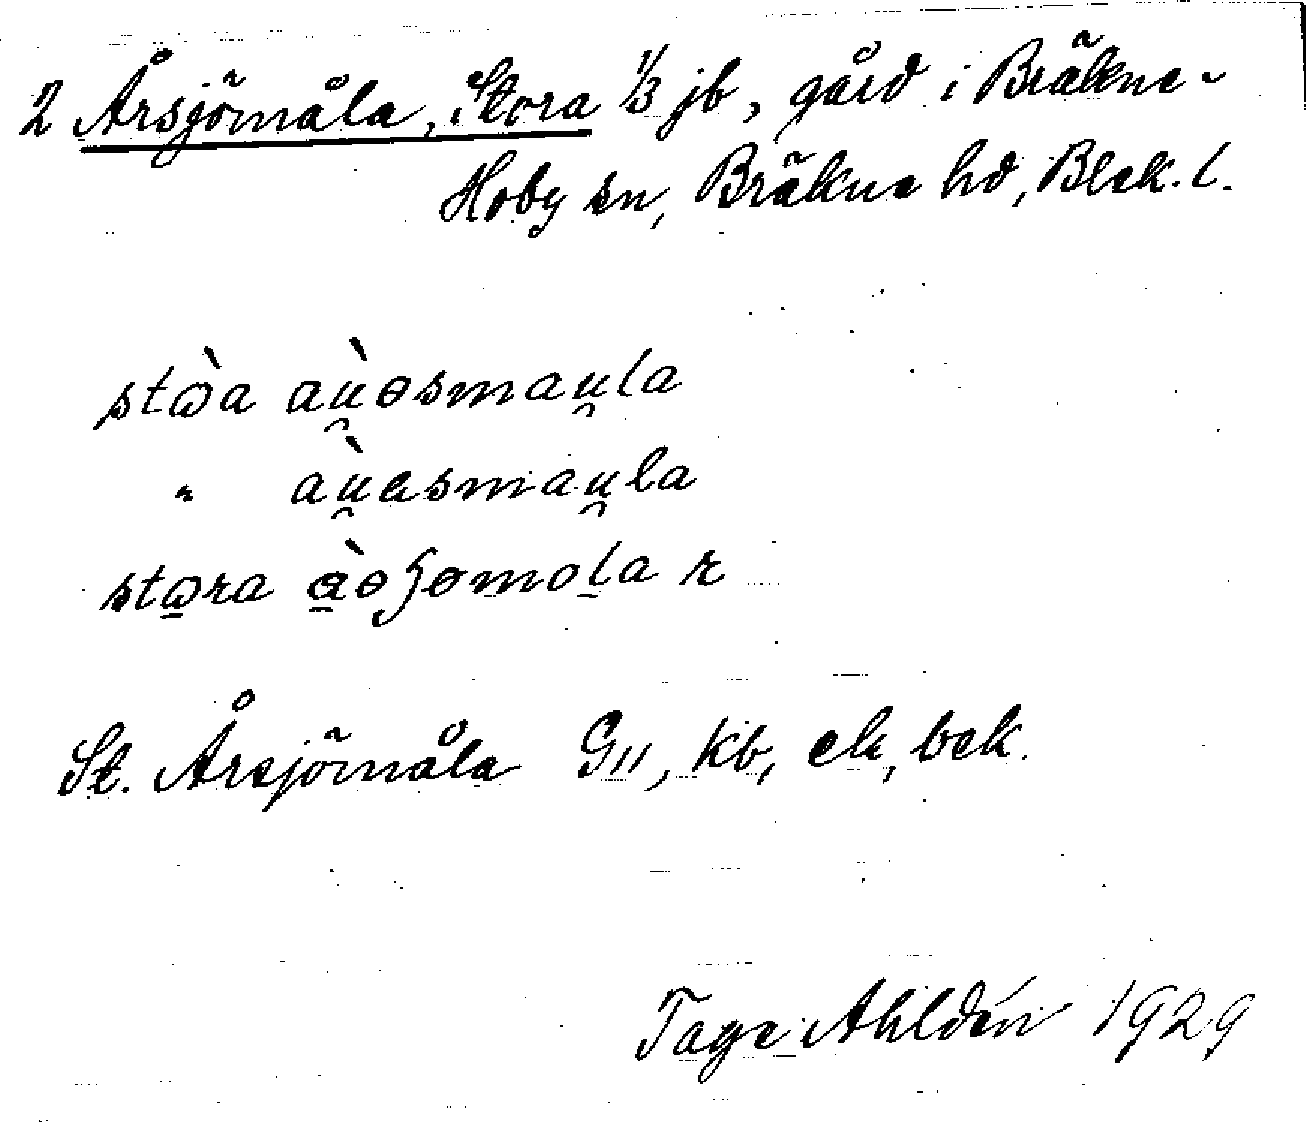 2 Årsjömåla, Stora 1/3 jb, gård i Bräkne-
Hoby sn, Bräkne hd, Blek. l.
stꙍ̀a aù̯ɵsmau̯la
" aù̯asmau̯la
stꙍ̱ra à̱ɵʒɵmoḻa r
St. Årsjömåla G11, kb, ek, bek.
Tage Ahldén 1929